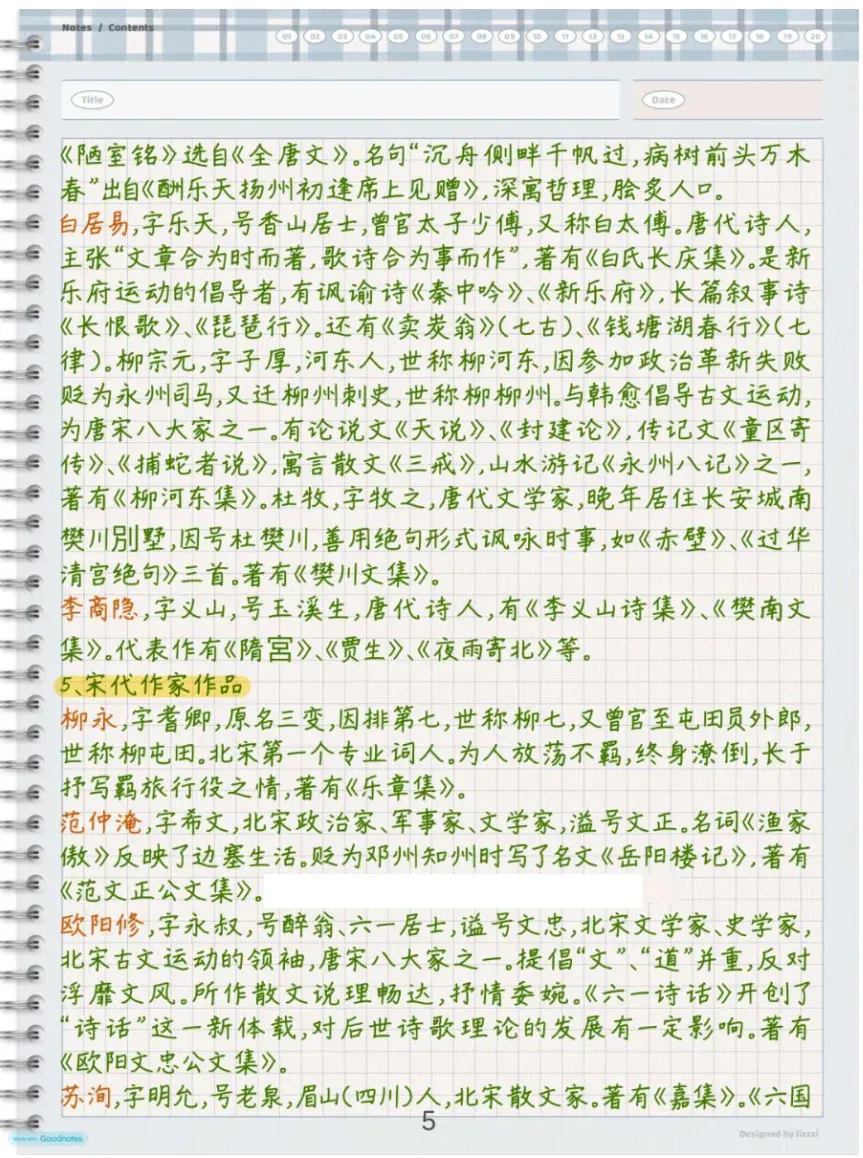 Notes / Contents
01 02 03 04 05 06 07 08 09 10 11 12 13 14 15 16 17 18 19 20
Title Date
《陋室铭》选自《全唐文》。名句“沉舟侧畔千帆过,病树前头万木
春”出自《酬乐天扬州初逢席上见赠》,深寓哲理,脍炙人口。
白居易,字乐天,号香山居士,曾官太子少傅,又称白太傅。唐代诗人,
主张“文章合为时而著,歌诗合为事而作”,著有《白氏长庆集》。是新
乐府运动的倡导者,有讽谕诗《秦中吟》、《新乐府》,长篇叙事诗
《长恨歌》、《琵琶行》。还有《卖炭翁》(七古)、《钱塘湖春行》(七
律)。柳宗元,字子厚,河东人,世称柳河东,因参加政治革新失败
贬为永州司马,又迁柳州刺史,世称柳柳州。与韩愈倡导古文运动,
为唐宋八大家之一。有论说文《天说》、《封建论》,传记文《童区寄
传》、《捕蛇者说》,寓言散文《三戒》,山水游记《永州八记》之一,
著有《柳河东集》。杜牧,字牧之,唐代文学家,晚年居住长安城南
樊川別墅,因号杜樊川,善用绝句形式讽咏时事,如《赤壁》、《过华
清宫绝句》三首。著有《樊川文集》。
李商隐,字义山,号玉溪生,唐代诗人,有《李义山诗集》、《樊南文
集》。代表作有《隋宮》、《贾生》、《夜雨寄北》等。
5、宋代作家作品
柳永,字耆卿,原名三变,因排第七,世称柳七,又曾官至屯田员外郎,
世称柳屯田。北宋第一个专业词人。为人放荡不羁,终身潦倒,长于
抒写羁旅行役之情,著有《乐章集》。
范仲淹,字希文,北宋政治家、军事家、文学家,溢号文正。名词《渔家
傲》反映了边塞生活。贬为邓州知州时写了名文《岳阳楼记》,著有
《范文正公文集》。
欧阳修,字永叔,号醉翁、六一居士,谥号文忠,北宋文学家、史学家,
北宋古文运动的领袖,唐宋八大家之一。提倡“文”、“道”并重,反对
浮靡文风。所作散文说理畅达,抒情委婉。《六一诗话》开创了
“诗话”这一新体载,对后世诗歌理论的发展有一定影响。著有
《欧阳文忠公文集》。
苏洵,字明允,号老泉,眉山(四川)人,北宋散文家。著有《嘉集》。《六国
5
Made with Goodnotes
Designed by liezzi